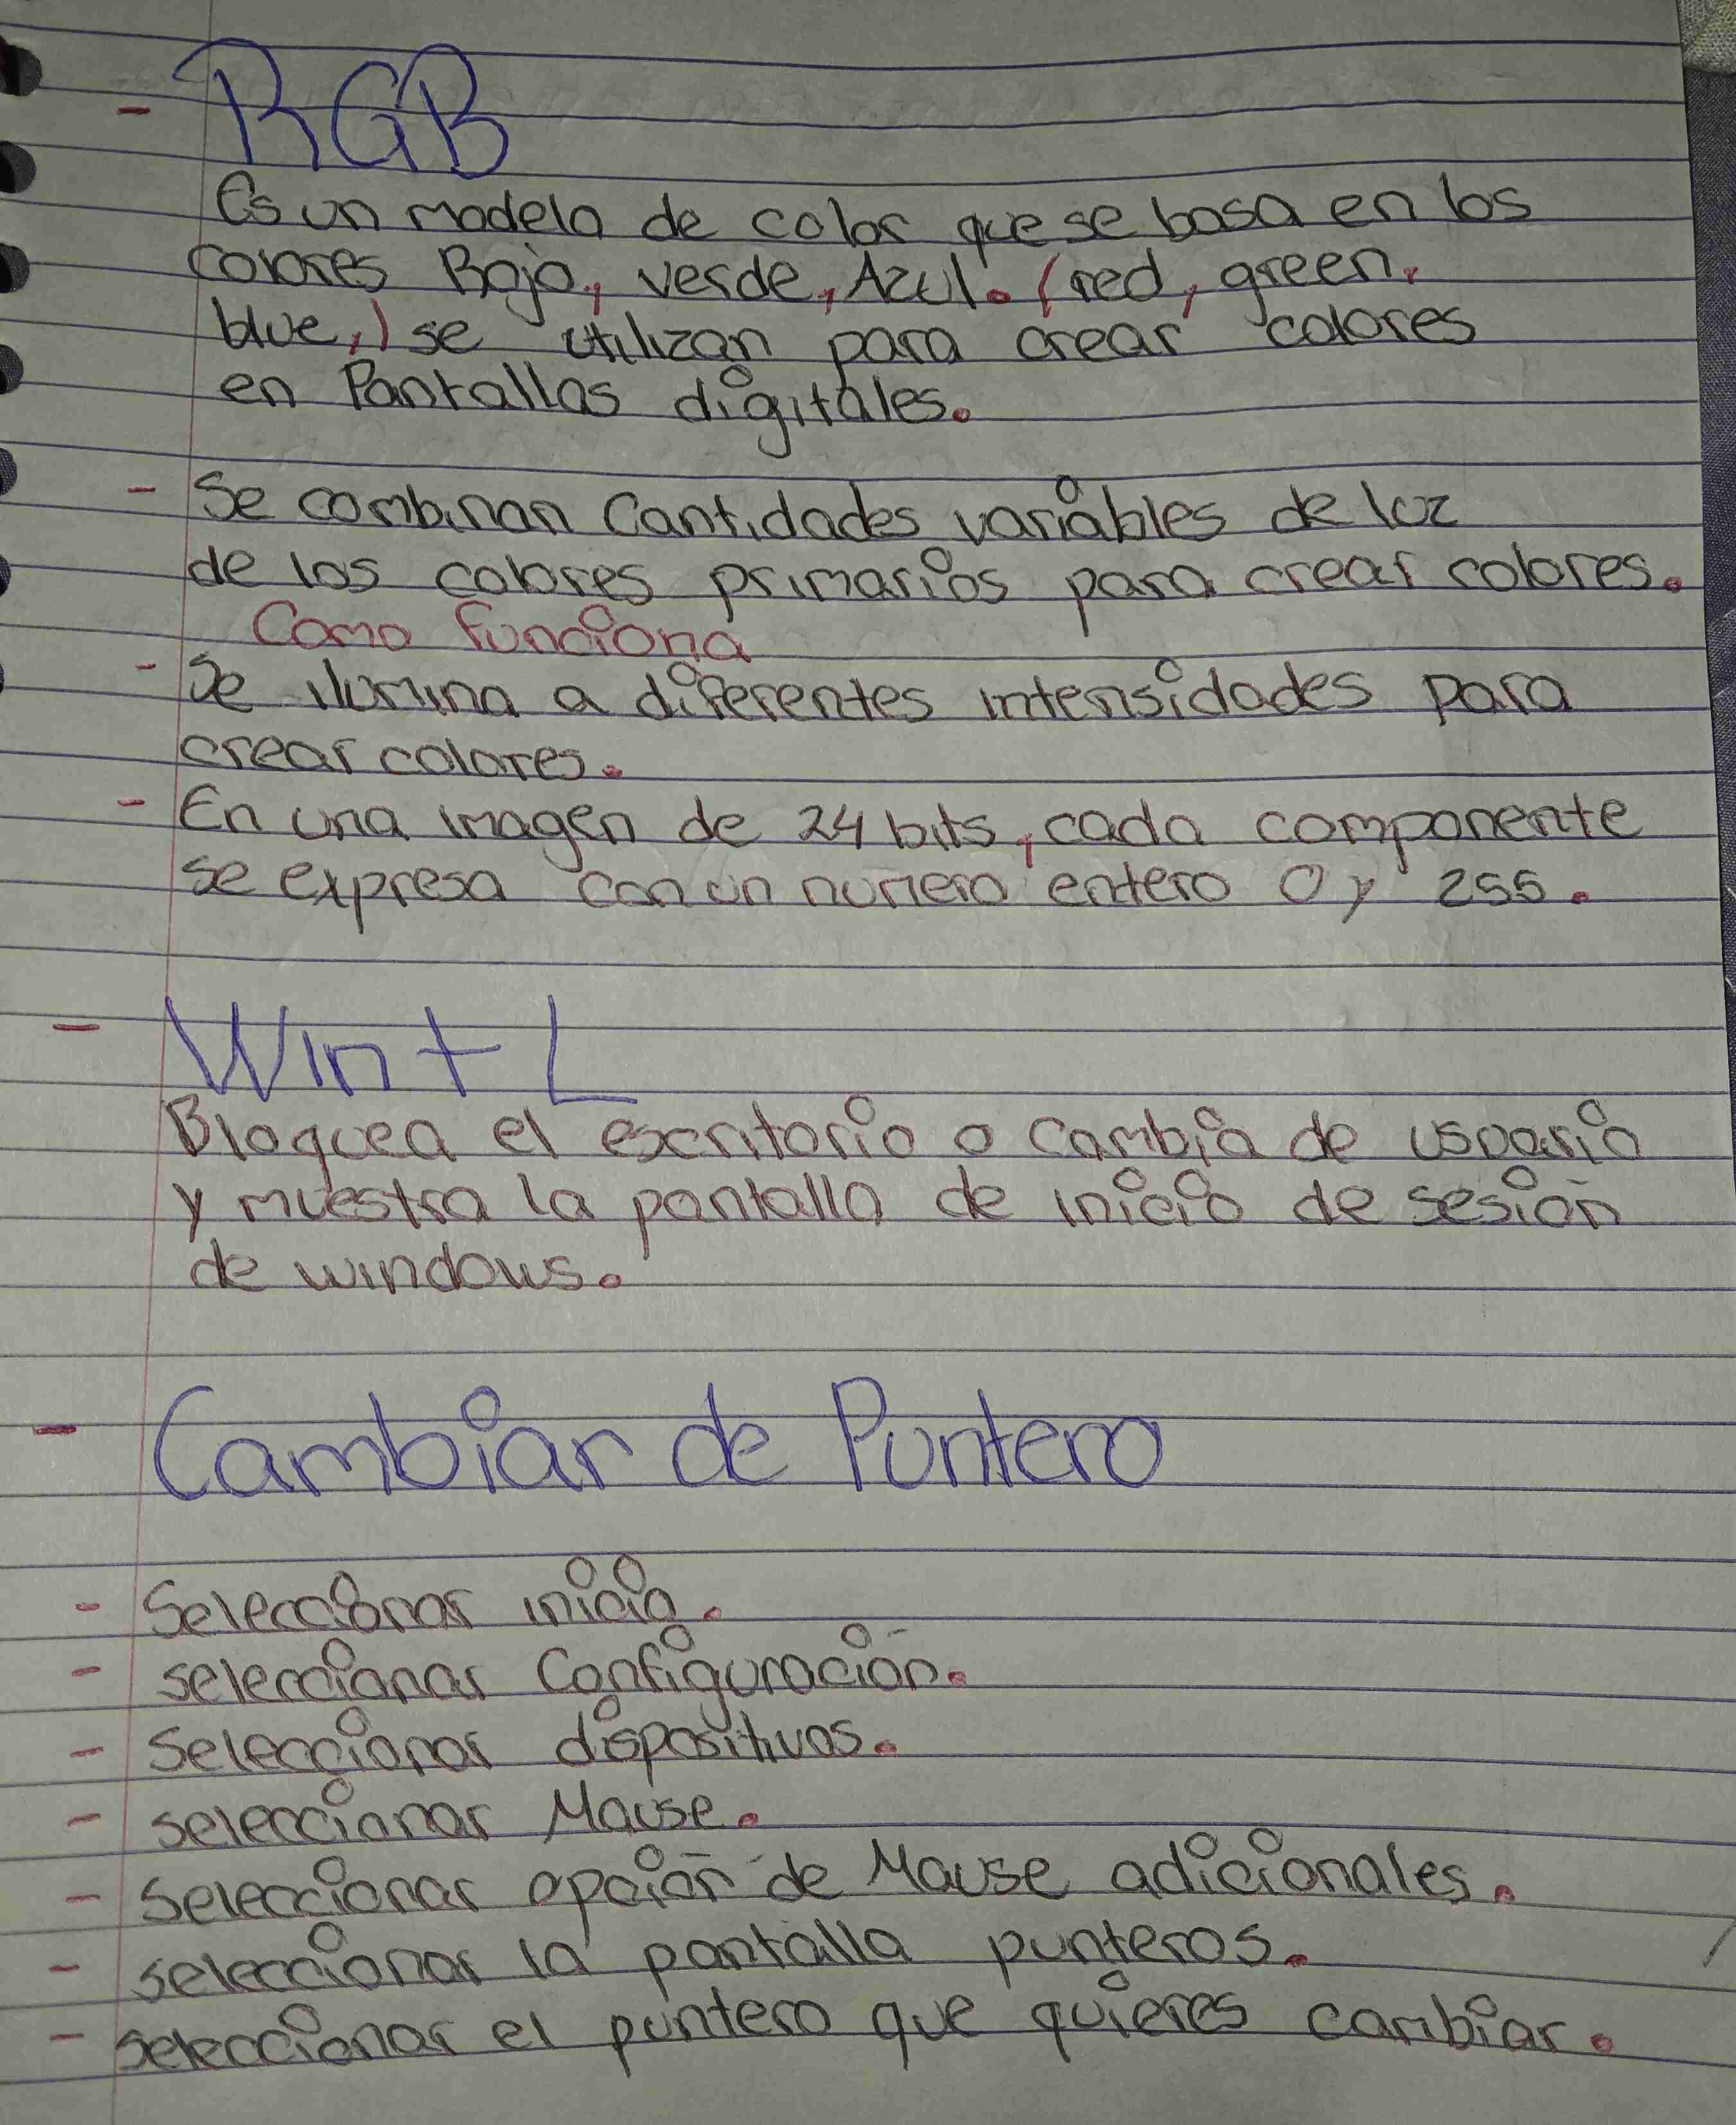 - RGB
Es un modelo de color que se basa en los
colores Rojo, verde, Azul. (red, green,
blue,) se utilizan para crear colores
en Pantallas digitales.
- Se combinan Cantidades variables de luz
de los colores primarios para crear colores.
Como funciona
- Se ilumina a diferentes intensidades para
crear colores.
- En una imagen de 24 bits, cada componente
se expresa con un numero entero 0 y 255.
- Win + L
Bloquea el escritorio o cambia de usuario
y muestra la pantalla de inicio de sesión
de windows.
- Cambiar de Puntero
- Seleccionar inicio.
- seleccionar Configuración.
- Seleccionar dispositivos.
- seleccionar Mause.
- Seleccionar opción de Mause adicionales.
- seleccionar la pantalla punteros.
- seleccionar el puntero que quieres cambiar.